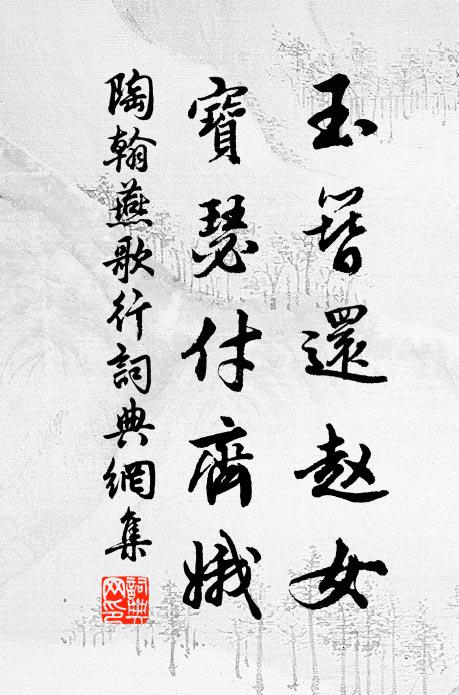 玉簪還赵女
寶瑟付齊娥
陶翰燕歌行詞典網集